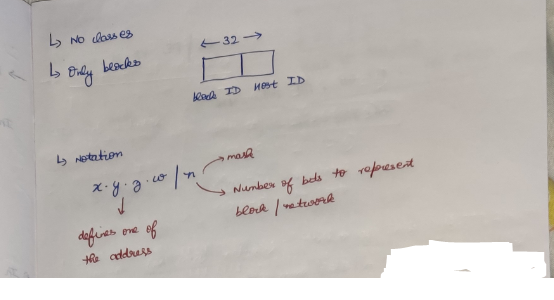 ↳ No classes
↳ Only blocks
← 32 →
Block ID Host ID
↳ Notation
x.y.z.w / n
→ mask
→ Number of bits to represent
block / network
↓
defines one of
the address